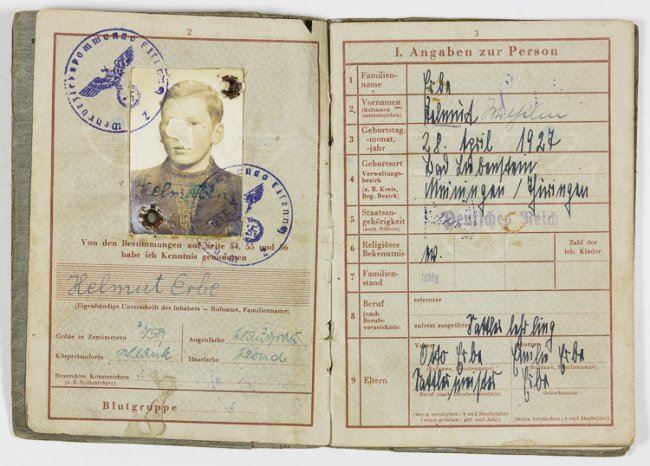 2
Wehrbezirkskommando Eisenach
Helmut Erbe
Von den Bestimmungen auf Seite 54, 55 und 56
habe ich Kenntnis genommen
Helmut Erbe
(Eigenhändige Unterschrift des Inhabers – Rufname, Familienname)
Größe in Zentimetern 159 Augenfarbe blaugrau
Körperbauform schlank Haarfarbe blond
Besondere Kennzeichen
(z. B. Brillenträger)
Blutgruppe
3
I. Angaben zur Person
1 Familien-
name Erbe
2 Vornamen
(Rufnamen
unterstreichen) Helmut Wilhelm
3 Geburtstag,
-monat,
-jahr 28. April 1927
4 Geburtsort
Verwaltungs-
bezirk
(z. B. Kreis,
Reg. Bezirk) Bad Liebenstein
Meiningen / Thüringen
5 Staatsan-
gehörigkeit
(auch frühere) Deutsches Reich
6 Religiöses
Bekenntnis ev. Zahl der
leb. Kinder
7 Familien-
stand ledig
8 Beruf
(nach
Berufs-
verzeichnis) erlernter
zuletzt ausgeübter Sattlerlehrling
9 Eltern
Otto Erbe Erbe
(Rufname, Familienname)
Sattlermeister Erbe
Beruf (nach Berufsverzeichnis) Geburtsname
(wenn verstorben: † und Sterbejahr) (wenn verstorben: † und Sterbejahr)
(wenn gefallen: gef. und Jahr)